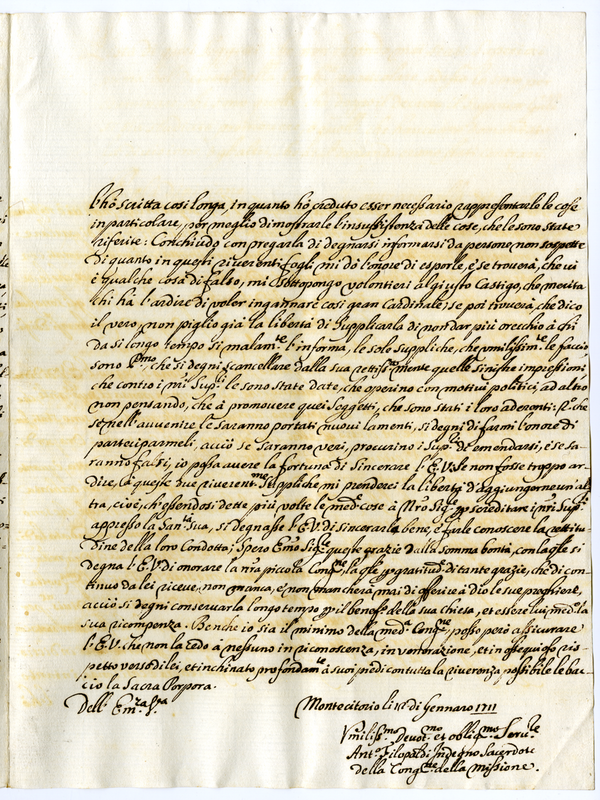 l'hò scritta così longa, in quanto hò creduto esser necessario rappresentarle le cose
in particolare, per meglio dimostrarle l'insussistenza delle cose, che le sono state
riferite: Conchiudo con pregarla di degnarsi informarsi da persone non sospette
di quanto in questi riverenti fogli mi dò l'onore di esporle, e se trouerà, che ui
è qualche cosa di falso, mi sottopongo volontieri al giusto Castigo, che merita
chi hà l'ardire di voler ingannare così gran Cardinale; se poi trouerà, che dico
il vero, non piglio già la libertà di supplicarla di non dar più orecchio à chi
da sì longo tempo sì malam.te l'informa, le sole suppliche, che umilissim.te le faccio
sono P.mo che si degni scancellare dalla sua rettiss.a mente quelle sinistre impressioni
che contro i miei Sup.ri le sono state date, che operino con motivi politici, ad altro
non pensando, che à promovere quei soggetti, che sono stati i loro aderenti: 2.o che
se nell'auuenire le saranno portati nuoui lamenti, si degni di farmi l'onore di
parteciparmeli, acciò se saranno veri, procurino i Sup.ri di emendarsi, e se sa-
ranno falsi, io possa auere la fortuna di sincerare l'E.V. Se non fosse troppo ar-
dire, à queste due riverent.me suppliche mi prenderei la libertà d'aggiungerne un'al
tra, cioè, ch'essendosi dette più volte le med.e cose à N'ro Sig.re p screditare i n'ri Sup.ri
appresso la San.tà Sua, si degnasse l'E.V. di sincerarla bene, e farle conoscere la rettitu-
dine della loro Condotta; Spero Em.o Sig.re queste grazie dalla somma bontà, con la q'le si
degna l'E.V. di onorare la n'ra piccola Cong.ne, la q'le p gratitud.e di tante grazie, che di con-
tinuo da lei riceve, non manca, e non mancherà mai di offerire à Dio le sue preghiere,
acciò si degni conservarla longo tempo p il benef.o della sua chiesa, et essere lui med.o la
sua ricompenza. Benche io sia il minimo della med.a Cong.ne, posso però assicurare
l'E.V. che non la cedo à nessuno in riconoscenza, in venerazione, et in ossequioso ris-
petto verso di lei, et inchinato profondam.te à suoi piedi con tutta la riverenza possibile le ba-
cio la Sacra Porpora.
Dell' Em.za V'ra
Montecitorio li 12 di Gennaro 1711
Vmiliss.mo Deuot.mo et obblig.mo Seru.re
Ant.o Filopaldi Indegno Sacerdote
della Cong.ne della Missione.